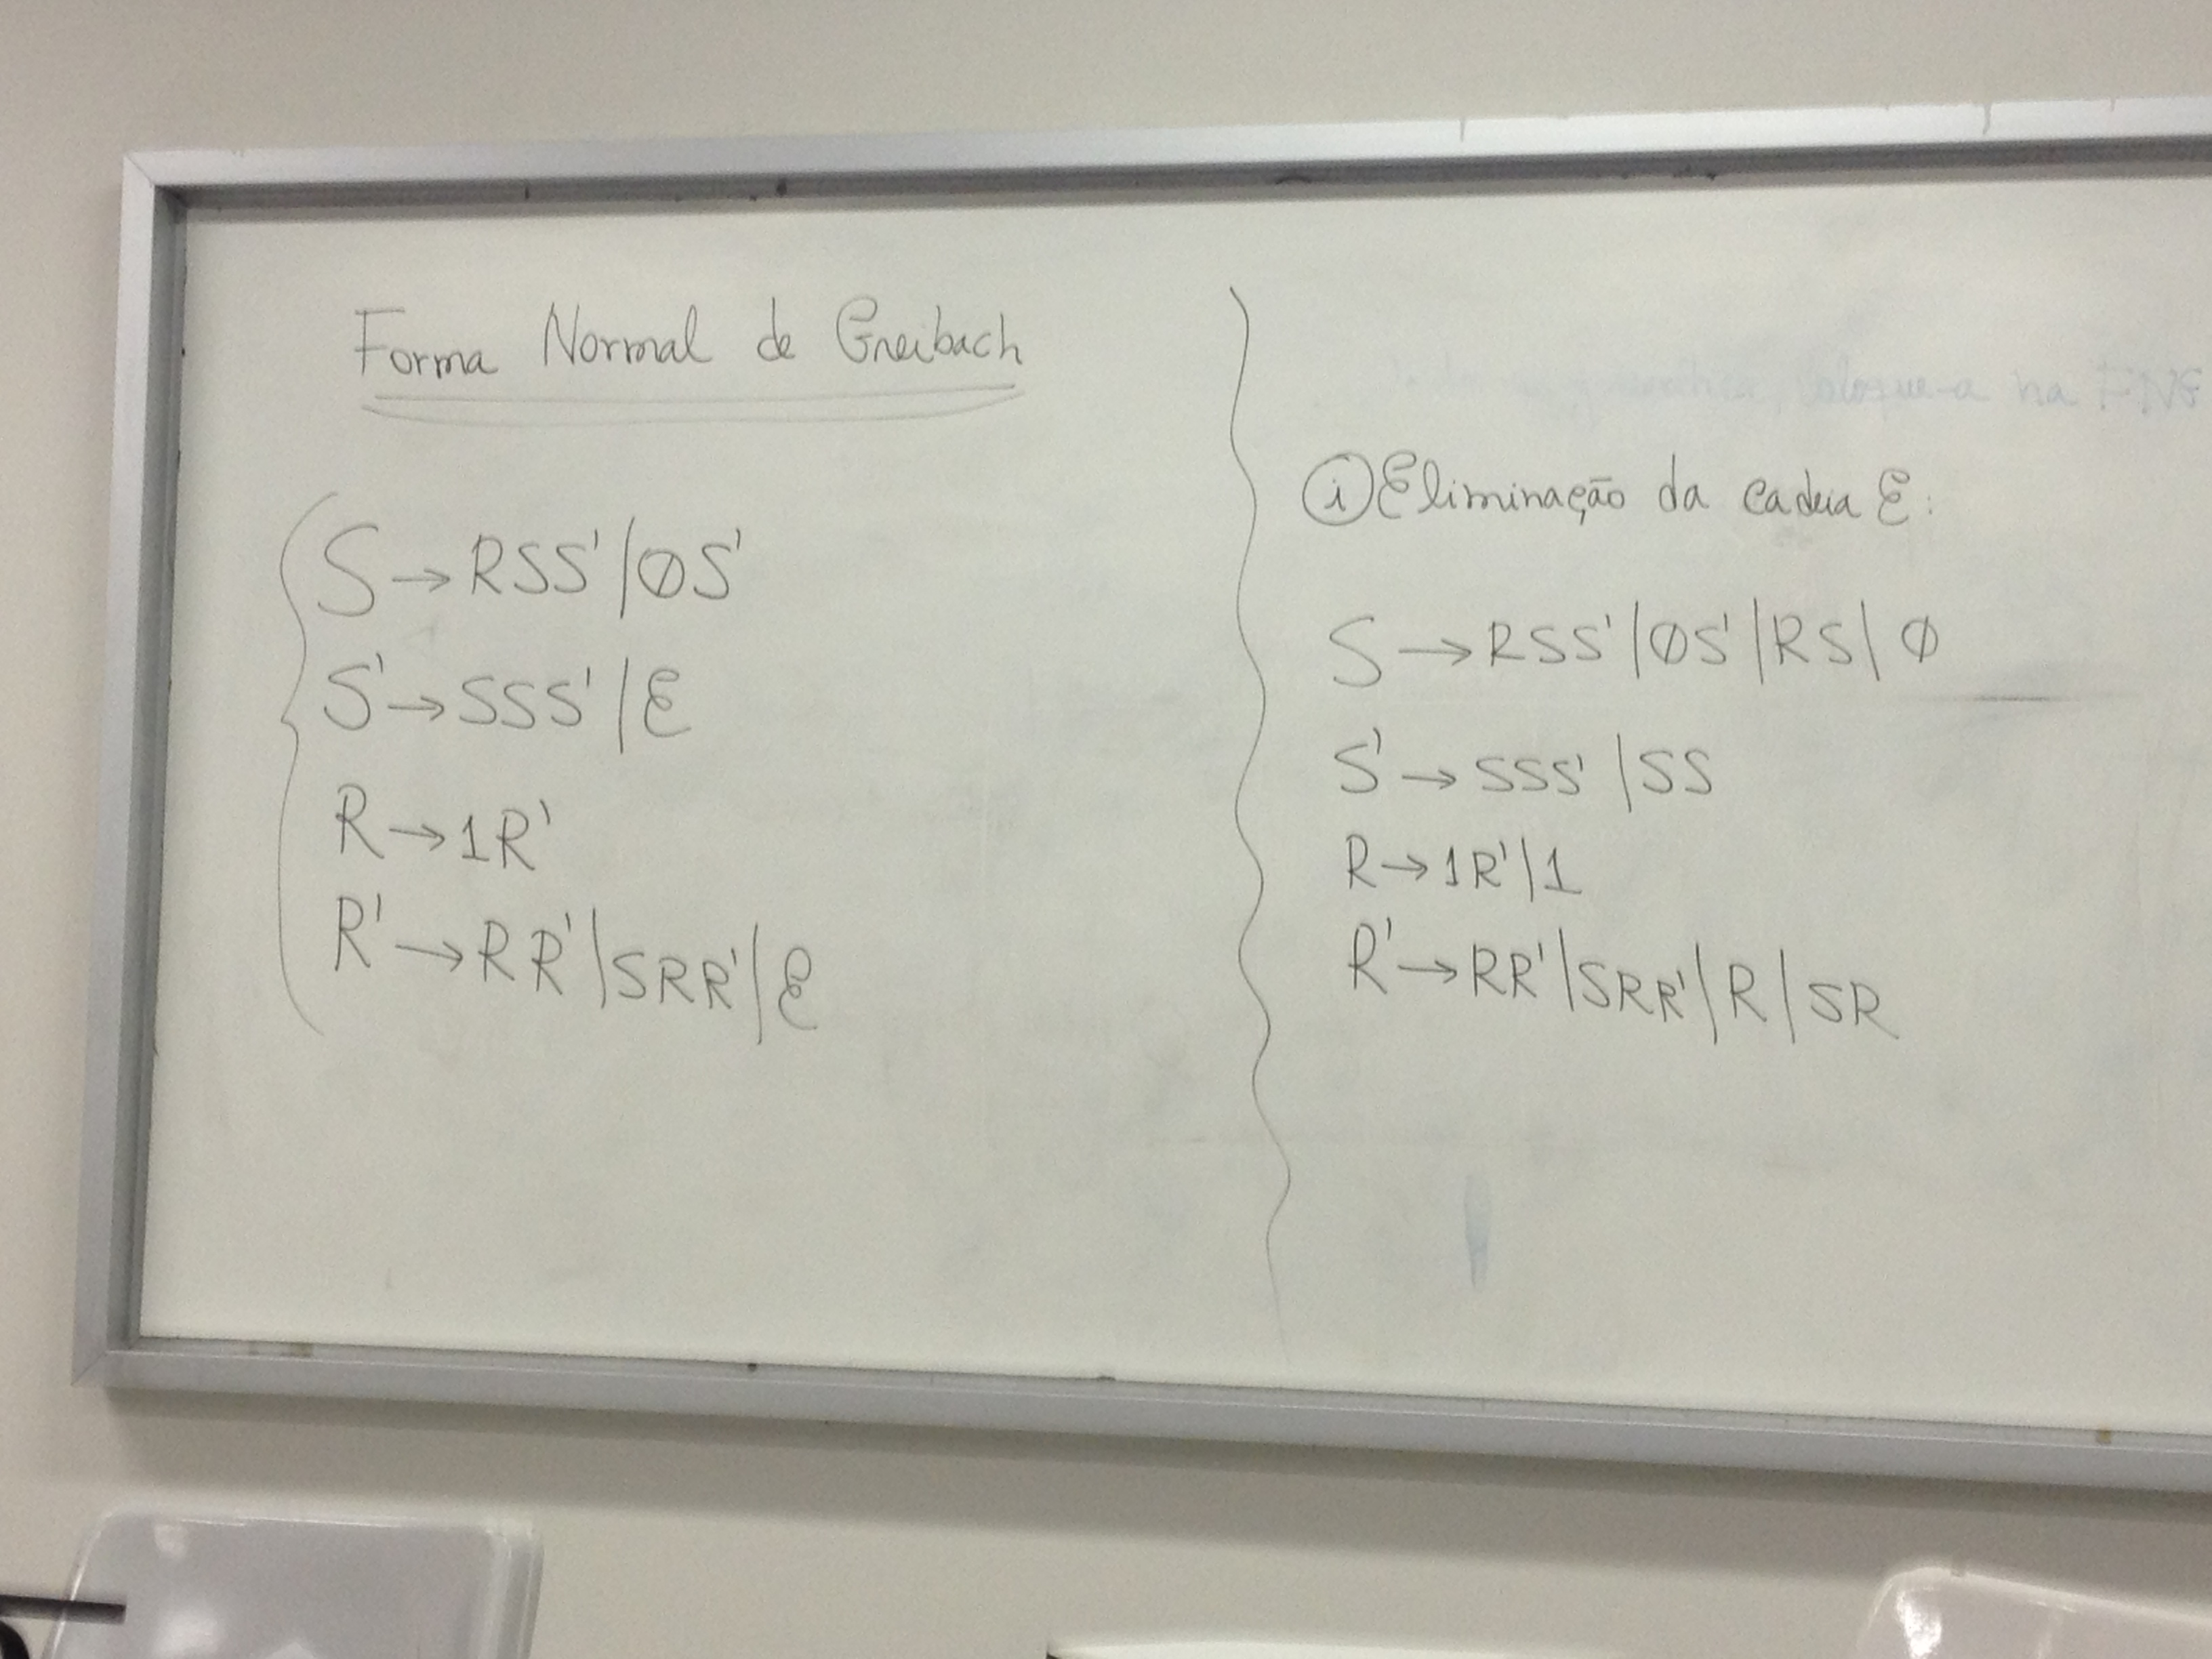 Forma Normal de Greibach
S → RSS' | ØS'
S' → SSS' | ε
R → 1R'
R' → RR' | SRR' | ε
na FNG
ⓘ Eliminação da cadeia ε:
S → RSS' | ØS' | RS | Ø
S' → SSS' | SS
R → 1R' | 1
R' → RR' | SRR' | R | SR